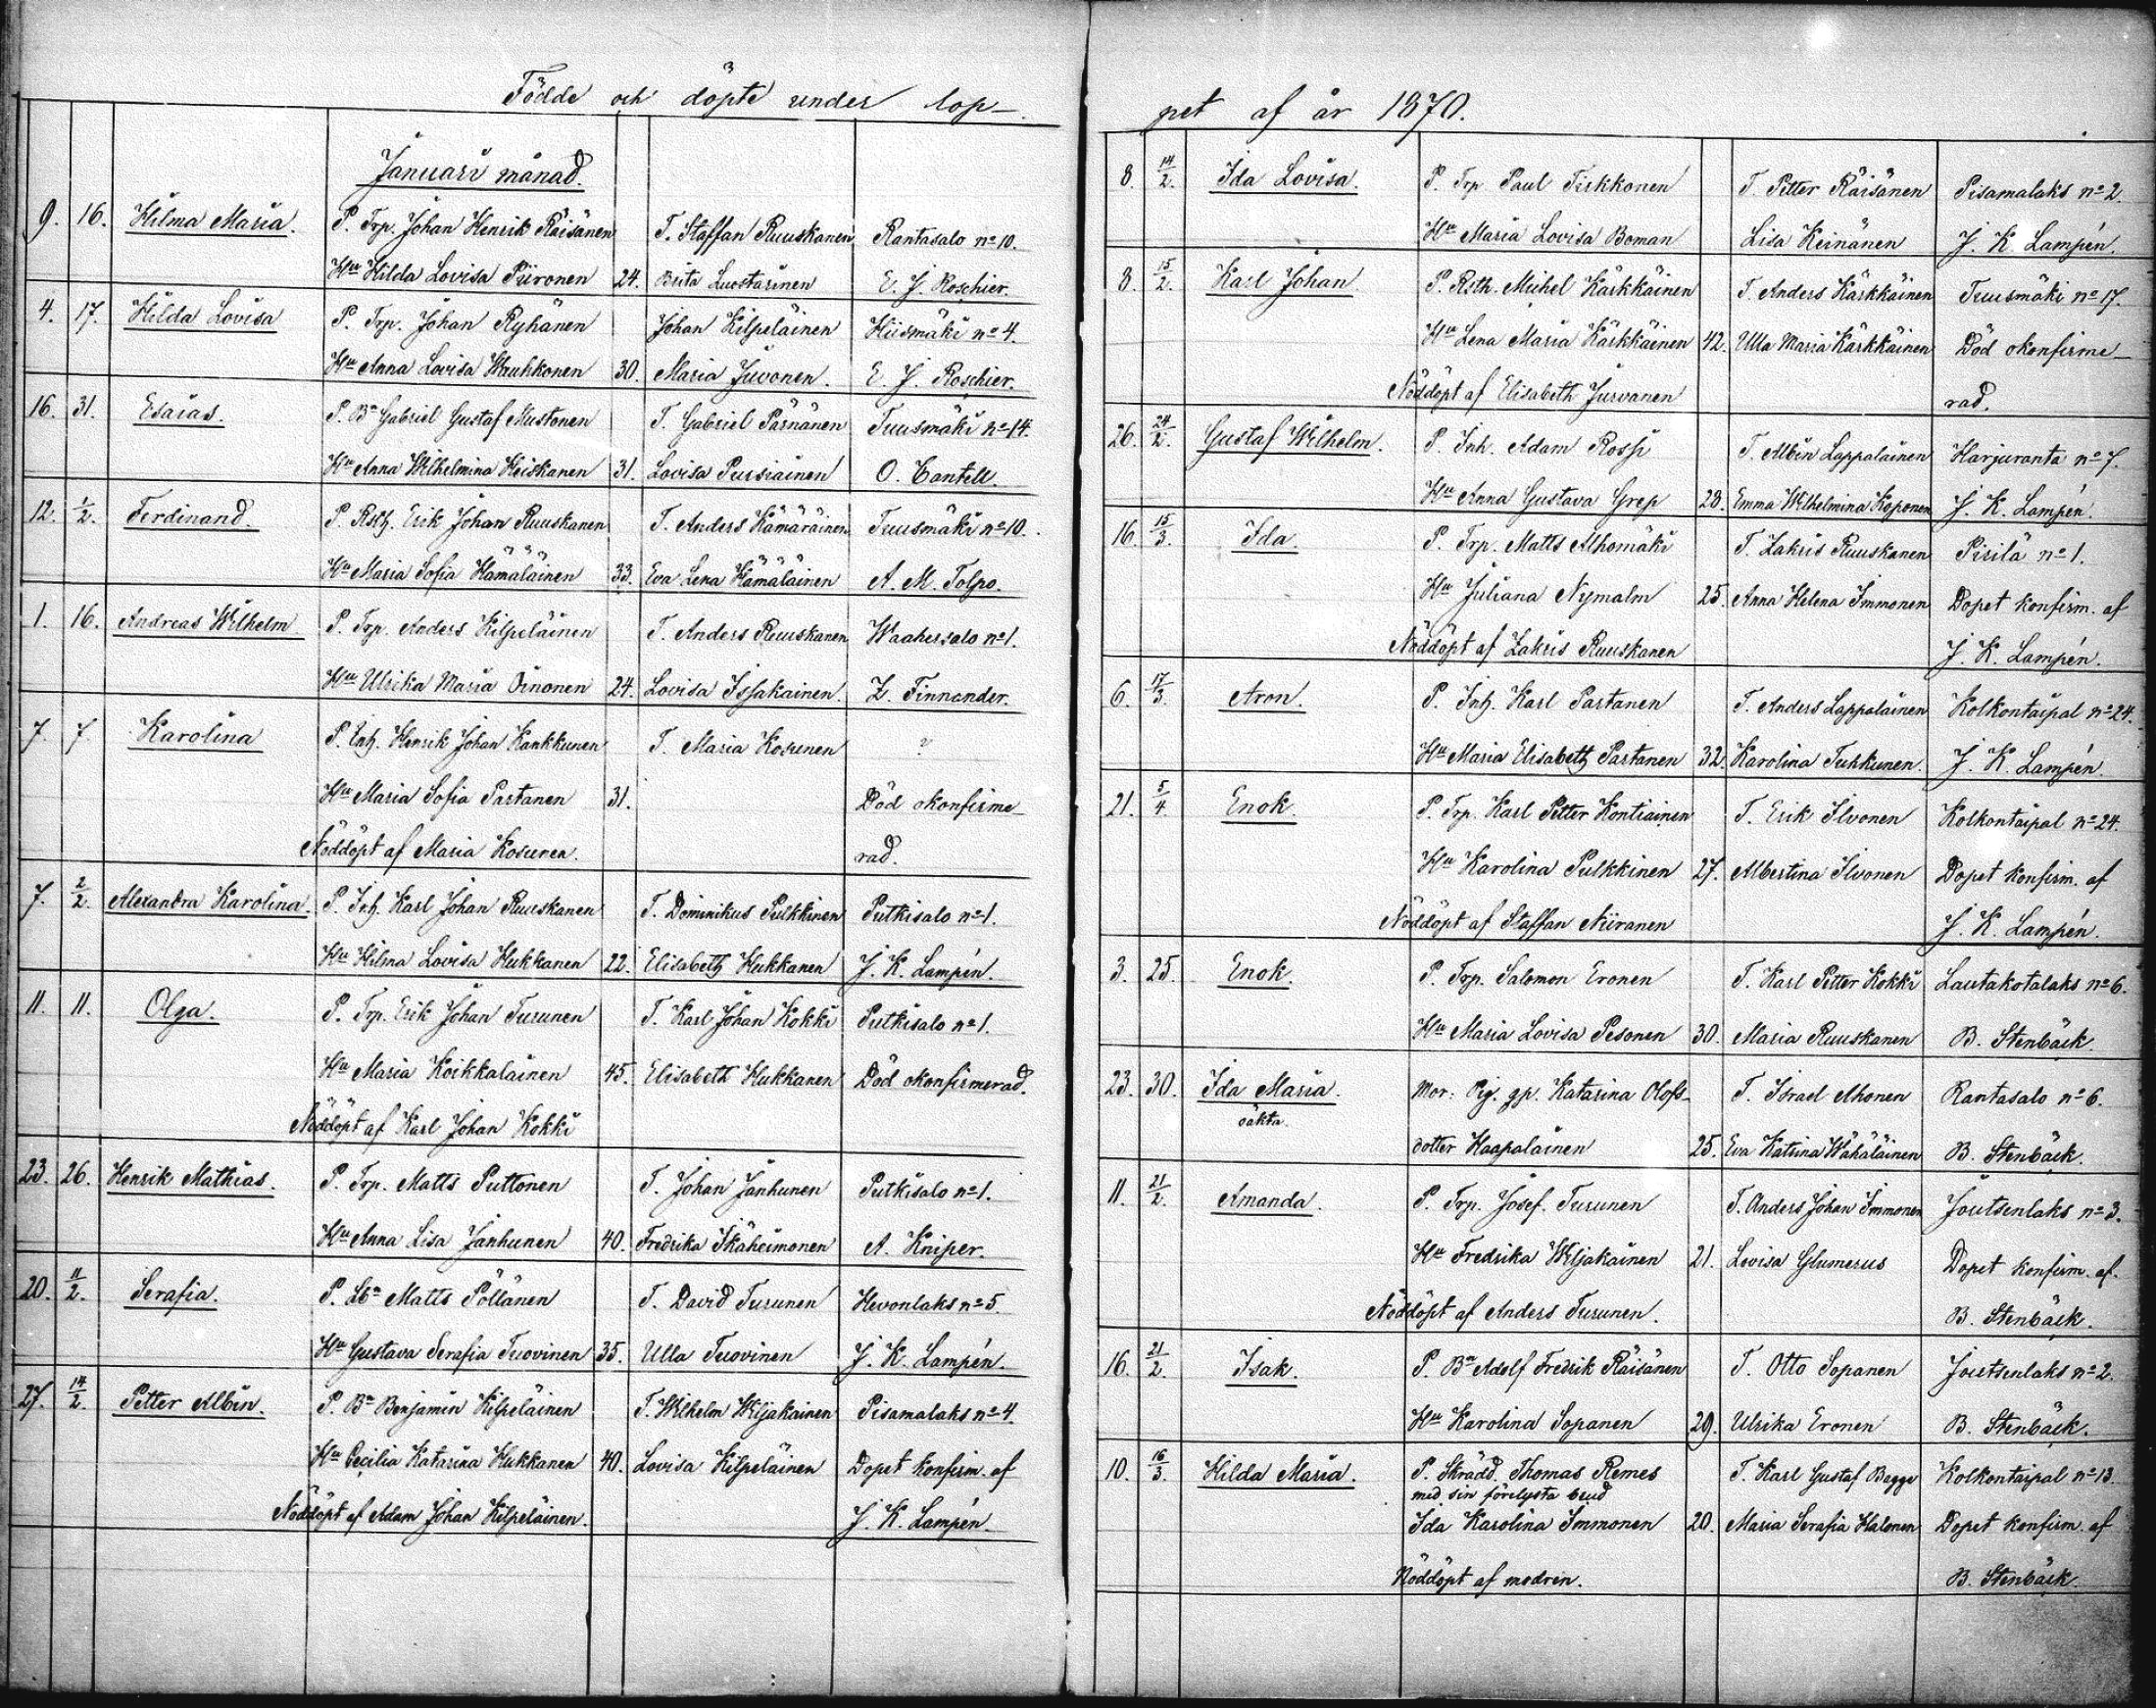 Födde och döpte under lop-
Januari månad.
9. 16. Hilma Maria. P. Trp. Johan Henrik Räisänen T. Staffan Ruuskanen Rantasalo nº 10.
Hu Hilda Lovisa Piironen 24. Brita Luostarinen E. J. Roschier.
4. 17. Hilda Lovisa P. Trp. Johan Ryhänen Johan Kilpeläinen Hiismäki nº 4.
Hu Anna Lovisa Wauhkonen 30. Maria Juvonen. E. J. Roschier.
16. 31. Esaias. P. Bn Gabriel Gustaf Mustonen T. Gabriel Pärnänen Tuusmäki nº 14.
Hu Anna Wilhelmina Heiskanen 31. Lovisa Pursiainen O. Cantell.
12. 1/2. Ferdinand. P. Rsth. Erik Johan Ruuskanen T. Anders Hämäräinen Tuusmäki nº 10.
Hu Maria Sofia Hämäläinen 33. Eva Lena Hämäläinen A. M. Tolpo.
1. 16. Andreas Wilhelm P. Trp. Anders Kilpeläinen T. Anders Ruuskanen Waahersalo nº 1.
Hu Ulrika Maria Oinonen 24. Lovisa Issakainen. Z. Finnander.
7. 7. Karolina P. Inh. Henrik Johan Kankkunen T. Maria Kosunen ?
Hu Maria Sofia Partanen 31. Död okonfirme-
Nöddöpt af Maria Kosunen. rad.
7. 2/2. Alexandra Karolina. P. Inh. Karl Johan Ruuskanen T. Dominikus Pulkkinen Putkisalo nº 1.
Hu Hilma Lovisa Hukkanen 22. Elisabeth Hukkanen J. K. Lampén.
11. 11. Olga. P. Trp. Erik Johan Turunen T. Karl Johan Kokki Putkisalo nº 1.
Hu Maria Koikkalainen 45. Elisabeth Hukkanen Död okonfirmerad.
Nöddöpt af Karl Johan Kokki
23. 26. Henrik Mathias. P. Trp. Matts Puttonen T. Johan Janhunen Putkisalo nº 1.
Hu Anna Lisa Janhunen 40. Fredrika Ikäheimonen A. Kniper.
20. 11/2. Serafia. P. Lbn Matts Pöllänen T. David Turunen Hevonlaks nº 5.
Hu Gustava Serafia Tuovinen 35. Ulla Tuovinen J. K. Lampén.
27. 14/2. Petter Albin. P. Bn Benjamin Kilpeläinen T. Wilhelm Wiljakainen Pisamalaks nº 4.
Hu Cecilia Katarina Hukkanen 40. Lovisa Kilpeläinen Dopet konfirm. af
Nöddöpt af Adam Johan Kilpeläinen. J. K. Lampén.
pet af år 1870.
8. 14/2. Ida Lovisa. P. Trp. Paul Tirkkonen T. Petter Räisänen Pisamalaks nº 2.
Hu Maria Lovisa Boman Lisa Keinänen J. K. Lampén.
8. 15/2. Karl Johan. P. Rsth. Mickel Kärkkäinen T. Anders Kärkkäinen Tuusmäki nº 17.
Hu Lena Maria Kärkkäinen 42. Ulla Maria Kärkkäinen Död okonfirme-
Nöddöpt af Elisabeth Jurvanen rad.
26. 24/2. Gustaf Wilhelm. P. Inh. Adam Rossi T. Albin Lappalainen Harjuranta nº 7.
Hu Anna Gustava Grep 28. Emma Wilhelmina Koponen J. K. Lampén.
16. 15/3. Ida. P. Trp. Matts Alhomäki T. Zakris Ruuskanen Pirilä nº 1.
Hu Juliana Nymalm 25. Anna Helena Immonen Dopet konfirm. af
Nöddöpt af Zakris Ruuskanen J. K. Lampén.
6. 17/3. Aron. P. Inh. Karl Partanen T. Anders Lappalainen Kolkontaipal nº 24.
Hu Maria Elisabeth Partanen 32. Karolina Tuhkunen. J. K. Lampén.
21. 5/4. Enok. P. Trp. Karl Petter Kontiainen T. Erik Ilvonen Kolkontaipal nº 24.
Hu Karolina Pulkkinen 27. Albertina Ilvonen Dopet konfirm. af
Nöddöpt af Staffan Niiranen J. K. Lampén.
3. 25. Enok. P. Trp. Salomon Eronen T. Karl Petter Kokki Lautakotalaks nº 6.
Hu Maria Lovisa Pesonen 30. Maria Ruuskanen B. Stenbäck.
23. 30. Ida Maria. Mor: Pig. gp. Katarina Olofs- T. Israel Ahonen Rantasalo nº 6.
oäkta. dotter Haapalainen 25. Eva Katrina Wähäläinen B. Stenbäck.
11. 21/2. Amanda. P. Trp. Josef. Turunen T. Anders Johan Immonen Joutsenlaks nº 3.
Hu Fredrika Wiljakainen 21. Lovisa Glumerus Dopet konfirm. af.
Nöddöpt af Anders Turunen. B. Stenbäck.
16. 21/2. Isak. P. Bn Adolf Fredrik Räisänen T. Otto Sopanen Joutsenlaks nº 2.
Hu Karolina Sopanen 29. Ulrika Eronen B. Stenbäck.
10. 16/3. Hilda Maria. P. Skrädd. Thomas Remes T. Karl Gustaf Bagge Kolkontaipal nº 13.
med sin förelysta brud
Ida Karolina Immonen 20. Maria Serafia Halonen Dopet konfirm. af
Nöddöpt af modren. B. Stenbäck.